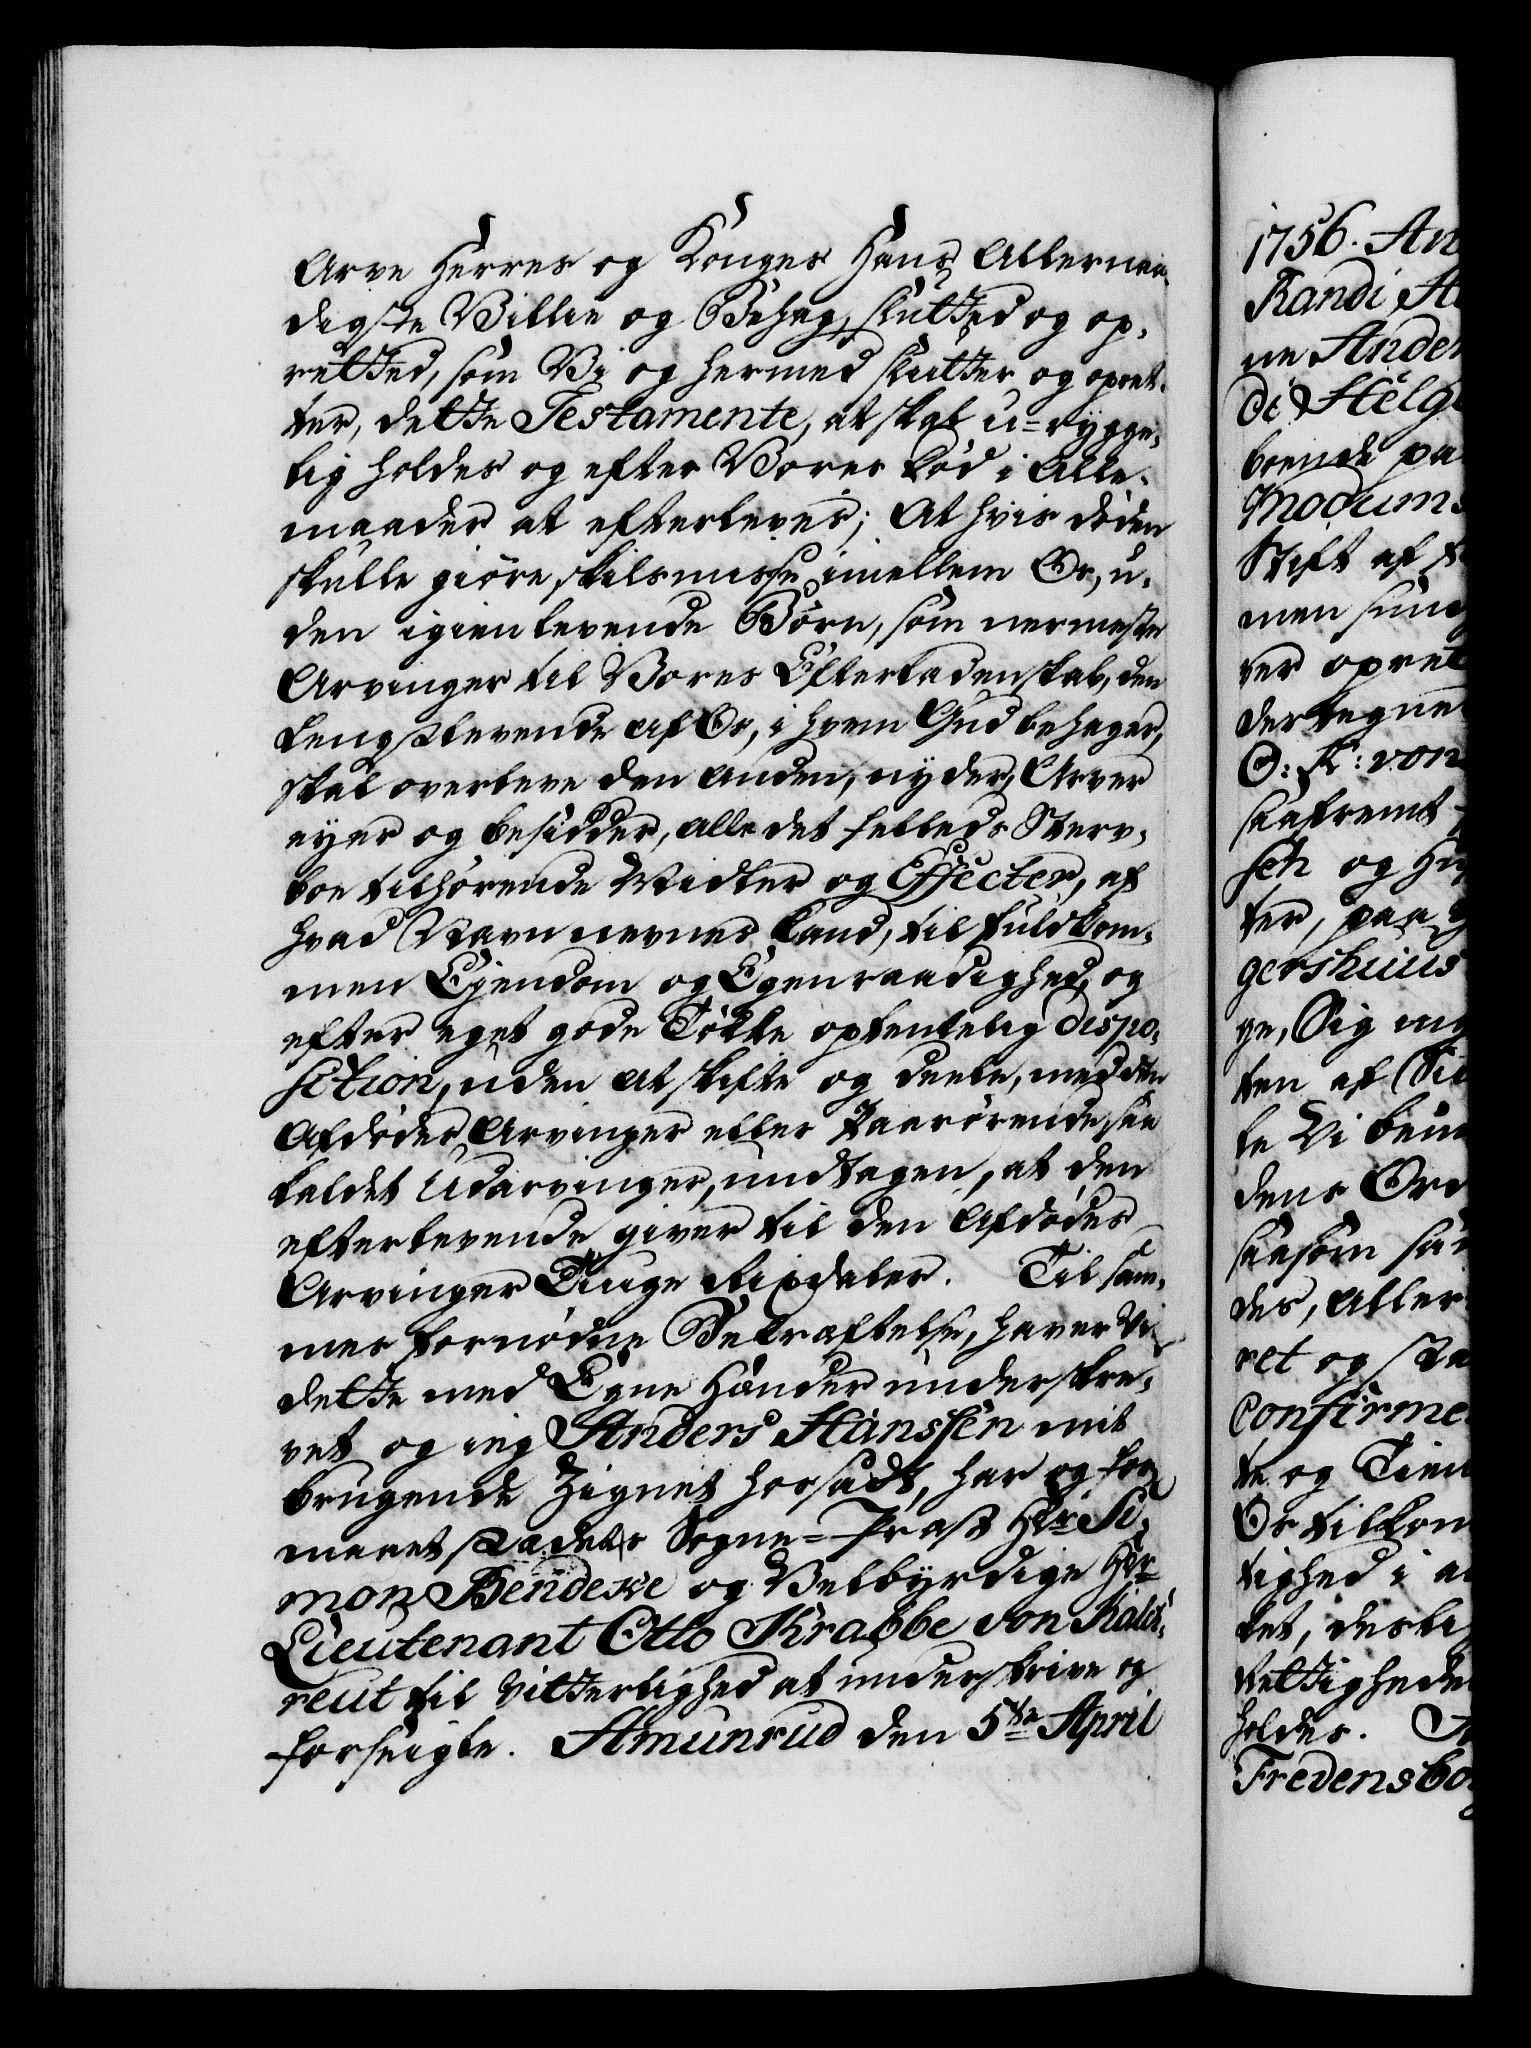 Arve Herres og Konges Hans Allernaa-
digste Villie og Behag, slutted og op-
retted, som Vi og hermed slutter og opret-
ter, dette Testamente, at skal u-rygge-
lig holdes og efter Vores Død i Alle-
maader at efterleves; At hvis Døden
skulle giøre skilsmisse imellem Os, u-
den igienlevende Børn, som nermeste
Arvinger til Vores Efterladenskab, den
Lengstlevende af Os, i hvem Gud behager,
skal overleve den anden, nyder, Arver
eyer og besidder, alle det felleds Sterv-
boe tilhørende Midler og Effecter, af
hvad Navn nevnes kand, til fuldkom-
men Ejendom og Egenraadighed, og
efter eget gode Tøkke optenkelig dispo-
sition, uden at skifte og deele, med den
Afdødes Arvinger eller Paarørende, saa
kaldet Udarvinger, undtagen, at den
efterlevende giver til den Afdødes
Arvinger Tiuge Rixdaler. Til sam-
mes fornødne Bekræftelse, haver Vi
dette med Egne Hænder underskre-
vet og ieg Anders Hanssen mit
brugende Zignet hossadt, har og for-
maaet stedets Sogne-Præst Hr Si-
mon Bendexe og Velbyrdige Hr
Lieutenant Otto Krabbe von Kalck-
reut til Vitterlighed at underskrive og
forseigle. Amunrud den 5te April
1756. An
Randi H
ne Ander
di Helg
boende pa
Modums
Stift af
men
ver opret
dertegne
O: K: von
saafremt
sen og
ter, paa
gershuus
ge, Sig
ten af
te Vi
dens Ord
saasom
des, Aller
ret og sta
Confirme
te og Tien
Os tilkom
tighed i a
tet, desli
Rettighede
holdes.
Fredensbor